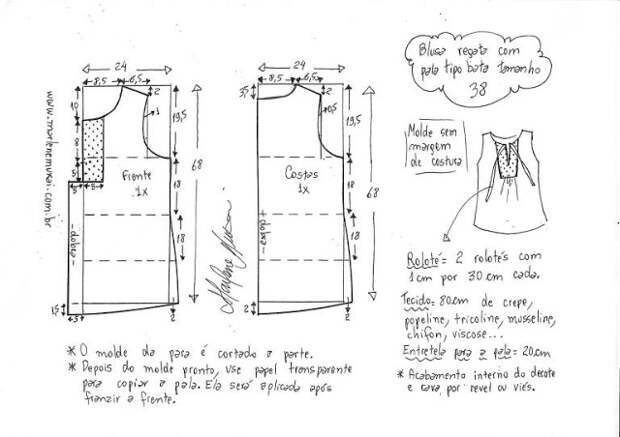 Blusa regata com
pala tipo bata tamanho
38
Molde sem
margem
de costura
24
8,5
6,5
2
10
1
19,5
8
5
5
Frente
1x
68
18
18
-dobra-
1,5
3
2
24
8,5
6,5
3,5
2
0,5
19,5
Costas
1x
68
18
18
-dobra-
2
2
www.marlenemukai.com.br
Marlene Mukai
Rolotê= 2 rolotês com
1cm por 30cm cada.
Tecido= 80cm de crepe,
popeline, tricoline, musseline,
chifon, viscose...
Entretela para a pala= 20cm
* Acabamento interno do decote
e cava por revel ou viés.
* O molde da para é cortado a parte.
* Depois do molde pronto, use papel transparente
para copiar a pala. Ela será aplicada após
franzir a frente.